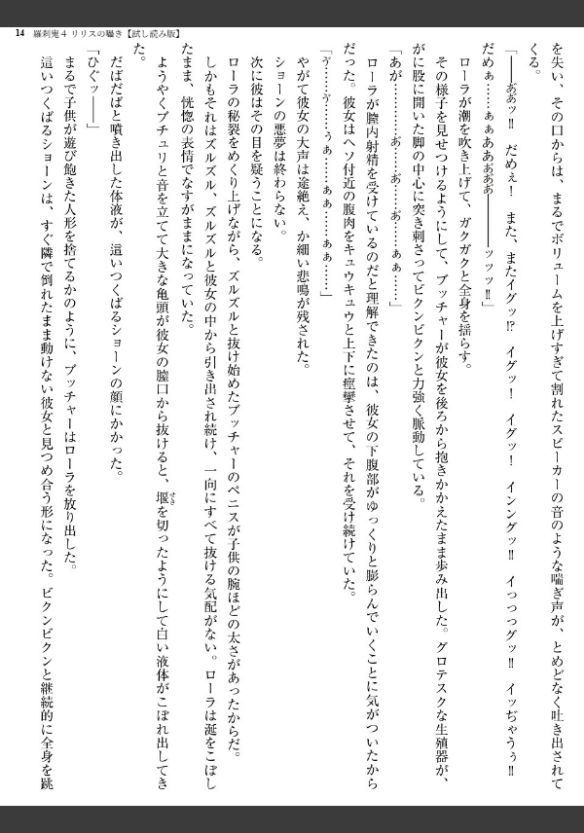 14 羅刹鬼4 リリスの囁き【試し読み版】
を失い、その口からは、まるでボリュームを上げすぎて割れたスピーカーの音のような喘ぎ声が、とめどなく吐き出されて
くる。
「――あ゛あッ!! だめぇ! また、またイグッ!? イグッ! イグッ! インングッ!! イっっっグッ!! イッぢゃうぅ!!
だめぁ……ぁぁああ゛あ゛あ゛――――ッッッ!!」
ローラが潮を吹き上げて、ガクガクと全身を揺らす。
その様子を見せつけるようにして、ブッチャーが彼女を後ろから抱きかかえたまま歩み出した。グロテスクな生殖器が、
がに股に開いた脚の中心に突き刺さってビクンビクンと力強く脈動している。
「あが…………お゛……お゛……お゛……ぁぁ……」
ローラが膣内射精を受けているのだと理解できたのは、彼女の下腹部がゆっくりと膨らんでいくことに気がついたから
だった。彼女はヘソ付近の腹肉をキュウキュウと上下に痙攣させて、それを受け続けていた。
「う゛……う゛……ぅぁ……ぁぁ……ぁぁ……」
やがて彼女の大声は途絶え、か細い悲鳴が残された。
ショーンの悪夢は終わらない。
次に彼はその目を疑うことになる。
ローラの秘裂をめくり上げながら、ズルズルと抜け始めたブッチャーのペニスが子供の腕ほどの太さがあったからだ。
しかもそれはズルズル、ズルズルと彼女の中から引き出され続け、一向にすべて抜ける気配がない。ローラは涎をこぼし
たまま、恍惚の表情でなすがままになっていた。
ようやくブチュリと音を立てて大きな亀頭が彼女の膣口から抜けると、堰せきを切ったようにして白い液体がこぼれ出してき
た。
だばだばと噴き出した体液が、這いつくばるショーンの顔にかかった。
「ひぐッ――」
まるで子供が遊び飽きた人形を捨てるかのように、ブッチャーはローラを放り出した。
這いつくばるショーンは、すぐ隣で倒れたまま動けない彼女と見つめ合う形になった。ビクンビクンと継続的に全身を跳